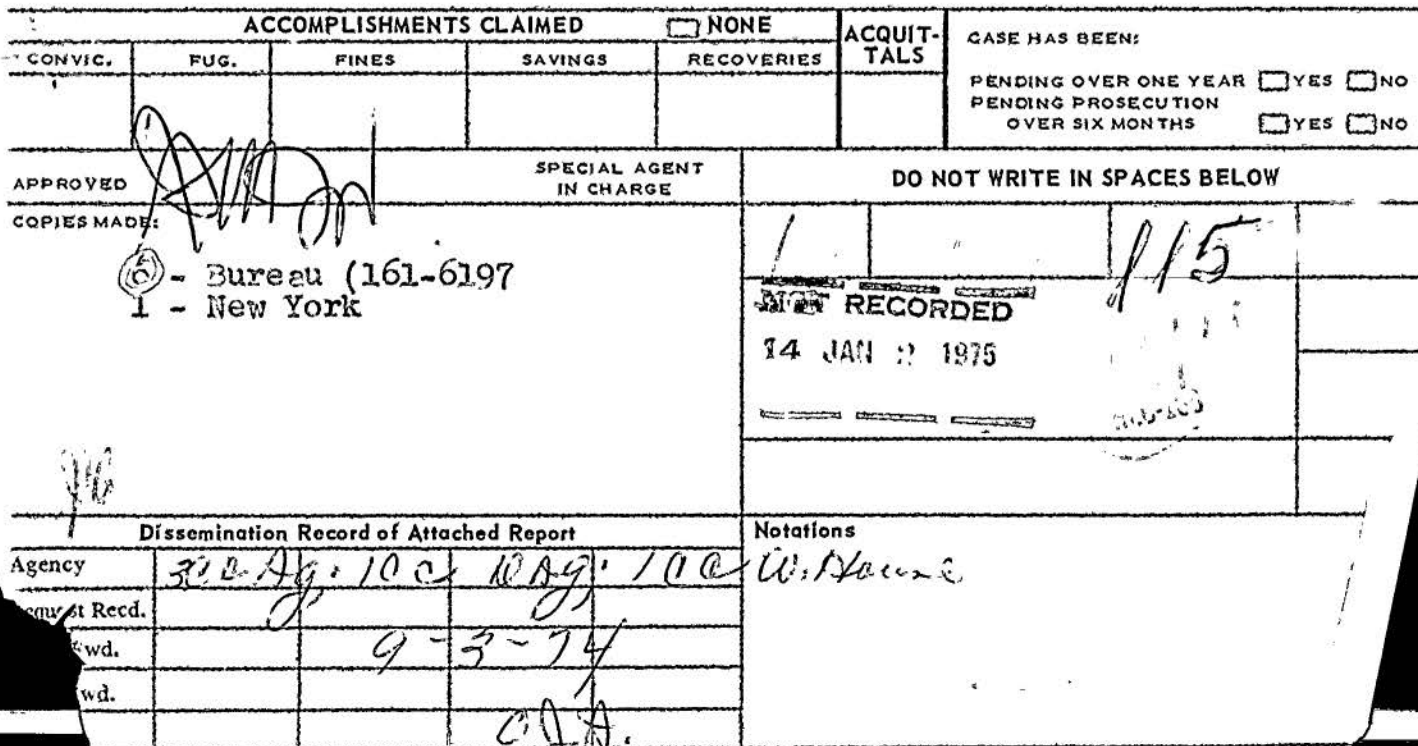 ACCOMPLISHMENTS CLAIMED NONE
ACQUIT-
TALS
CONVIC. FUG. FINES SAVINGS RECOVERIES
CASE HAS BEEN:
PENDING OVER ONE YEAR YES NO
PENDING PROSECUTION
OVER SIX MONTHS YES NO
APPROVED
SPECIAL AGENT
IN CHARGE
DO NOT WRITE IN SPACES BELOW
COPIES MADE:
6 - Bureau (161-6197
1 - New York
115
NOT RECORDED
14 JAN 2 1975
Dissemination Record of Attached Report
Notations
Agency
W. House
Request Recd.
wd.
9-3-74
wd.